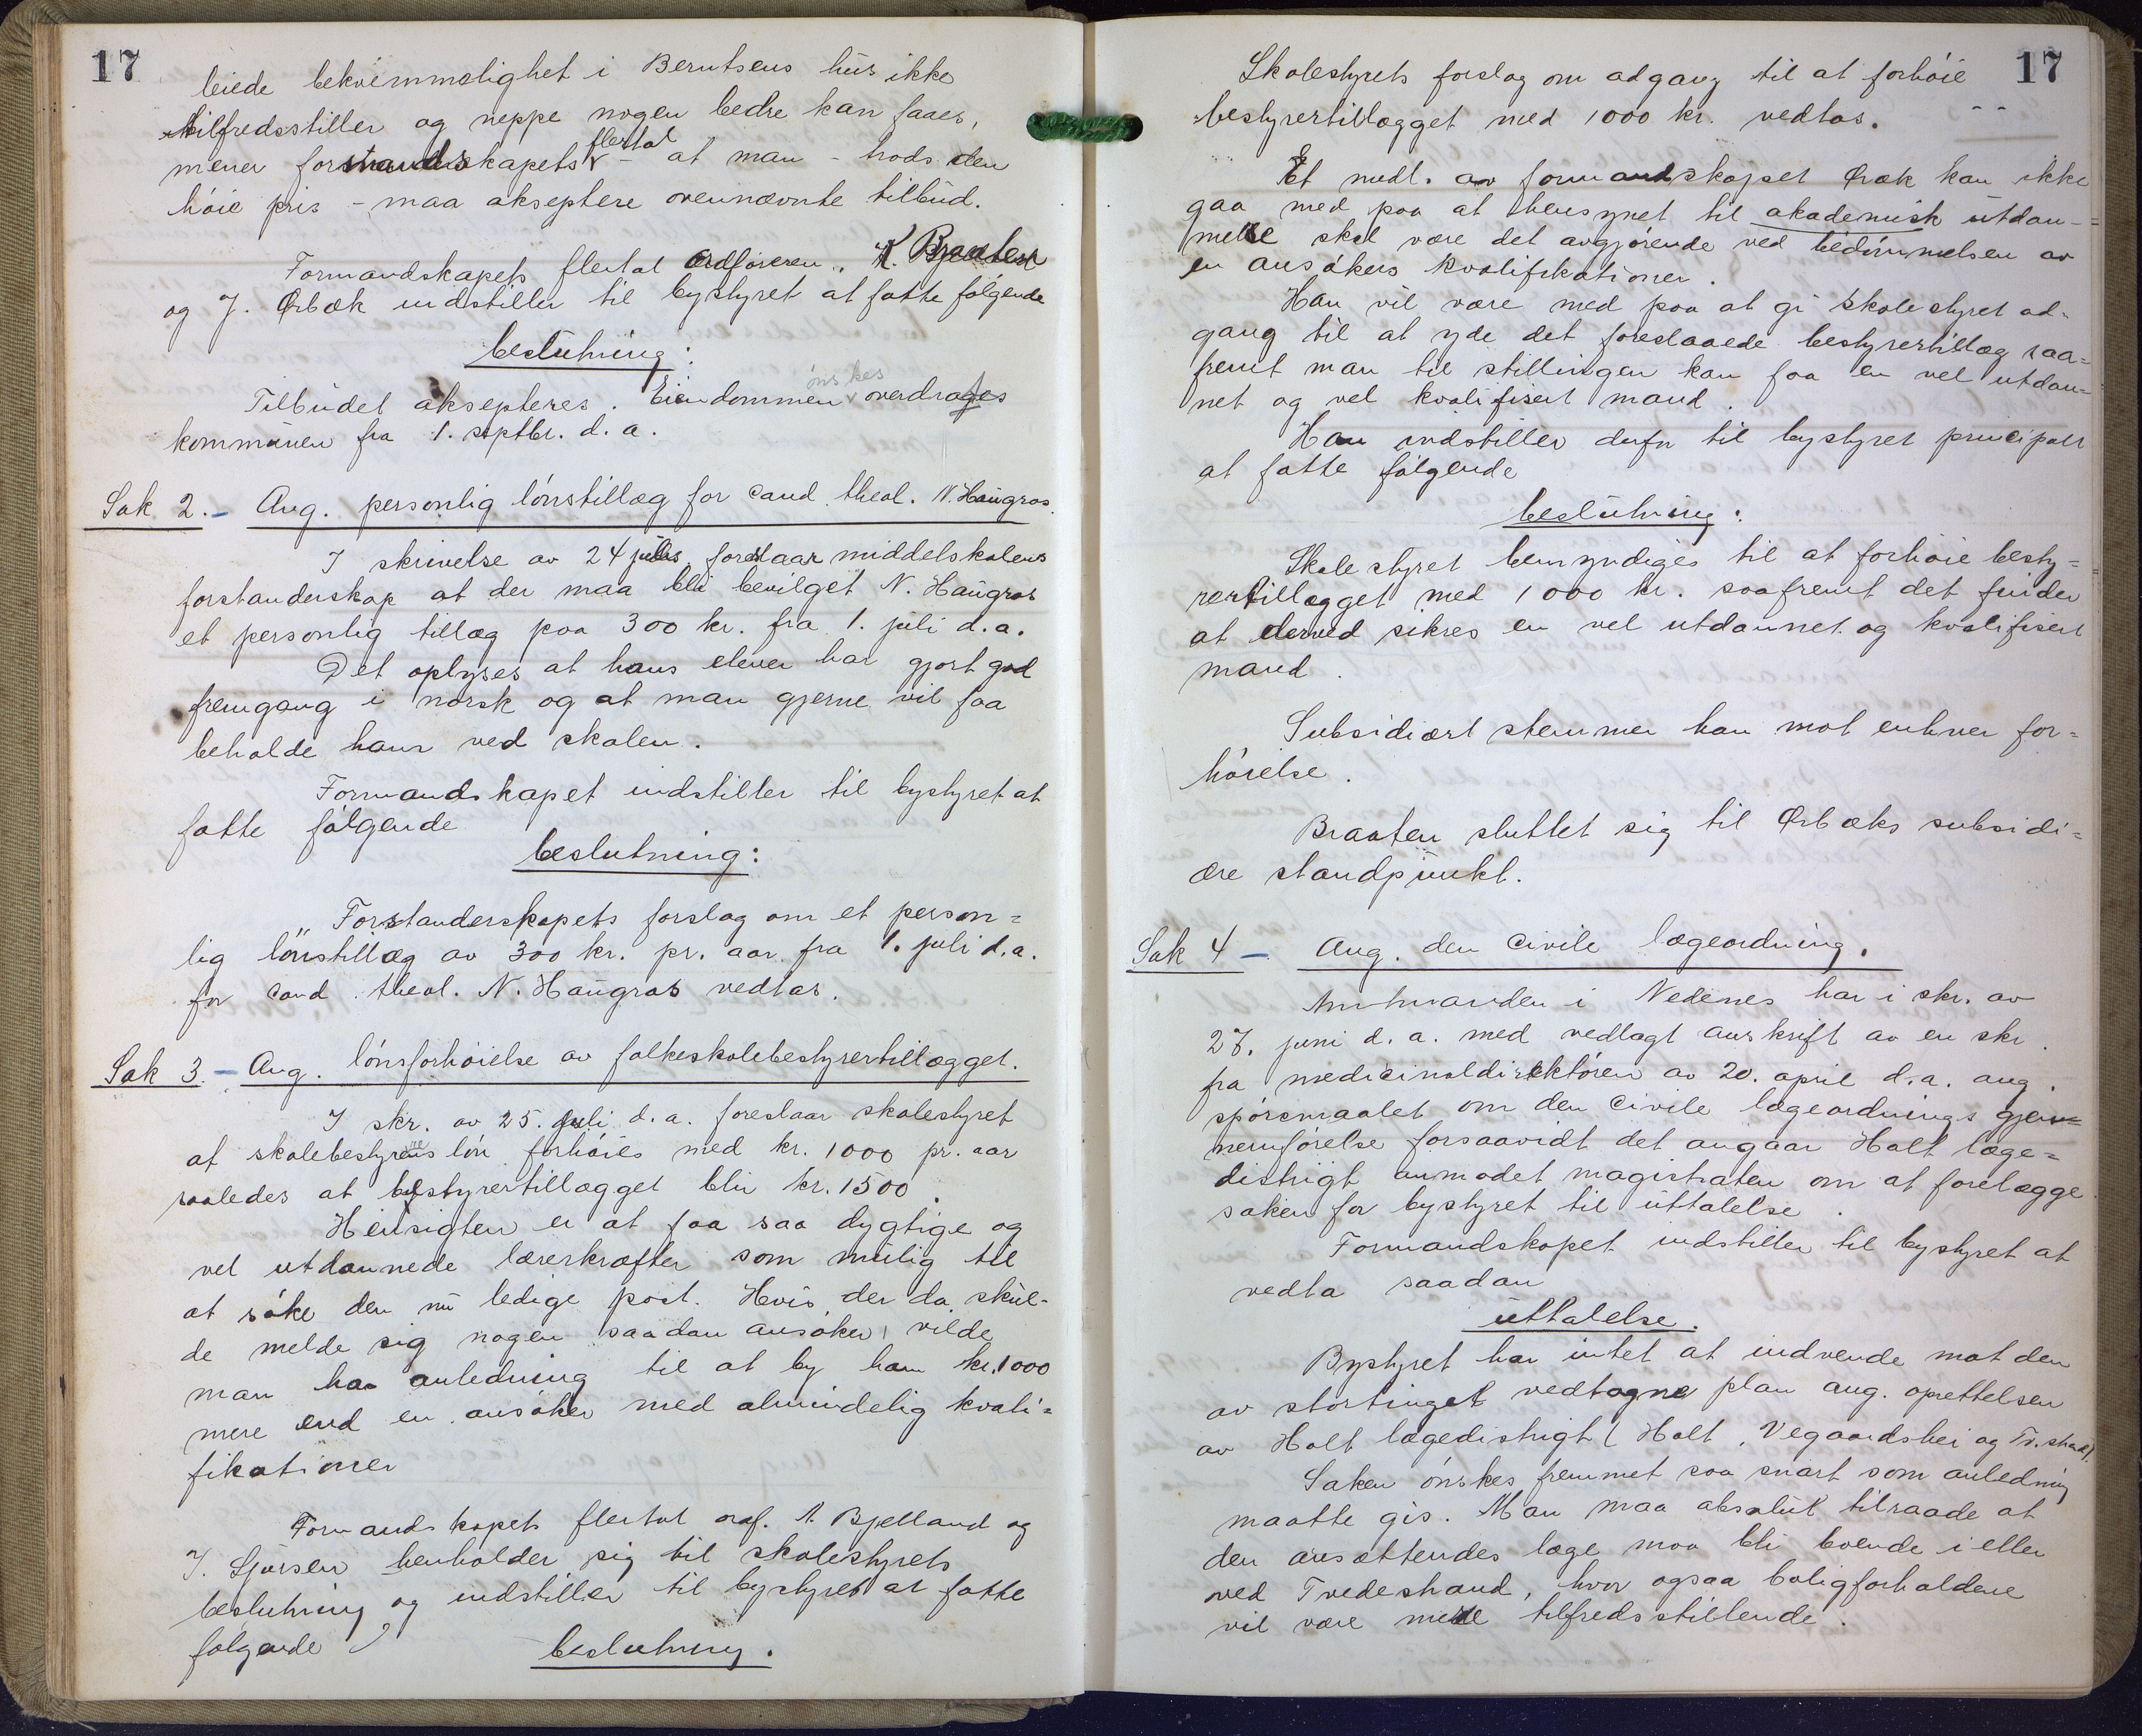 17
leiede bekvemmelighet i Berntsens hus ikke
tilfredsstiller og neppe nogen bedre kan faaes,
mener formandskapets flertal - at man - trods den
høie pris - maa akseptere ovennævnte tilbud.
Formandskapets flertal ordføreren, K. Braaten
og J. Ørbæk indstiller til bystyret at fatte følgende
beslutning:
Tilbudet aksepteres. Eiendommen ønskes overdrages
kommunen fra 1. septbr. d. a.
Sak 2. - Ang. personlig lønstillæg for cand. theol. N. Haugros.
I skrivelse av 24 juli foreslaar middelskolens
forstanderskap at der maa bli bevilget N. Haugros
et personlig tillæg paa 300 kr. fra 1. juli d.a.
Det oplyses at hans elever har gjort god
fremgang i norsk og at man gjerne vil faa
beholde ham ved skolen.
Formandskapet indstiller til bystyret at
fatte følgende
beslutning:
Forstanderskapets forslag om et person=
lig lønstillæg av 300 kr. pr. aar fra 1. juli d.a.
for cand. theol. N. Haugros vedtas.
Sak 3. - Ang. lønsforhøielse av folkeskolebestyrertillægget.
I skr. av 25. juli d. a. foreslaar skolestyret
at skolebestyrerens løn forhøies med kr. 1000 pr. aar
saaledes at bestyrertillægget blir kr. 1500.
Hensigten er at faa saa dygtige og
vel utdannede lærerkræfter som mulig til
at søke den nu ledige post. Hvis der da skul-
de melde sig nogen saadan ansøker, vilde
man ha anledning til at by ham kr. 1000
mere end en ansøker med almindelig kvali=
fikationer
Formandskapets flertal ordf. A. Bjelland og
J. Sjørsen henholder sig til skolestyrets
beslutning og indstiller til bystyret at fatte
følgende
beslutning.
17
Skolestyrets forslag om adgang til at forhøie
bestyrertillægget med 1000 kr. vedtas.
Et medl. av formandskapet Ørbæk kan ikke
gaa med paa at hensynet til akademisk utdan-
melse skal være det avgjørende ved bedømmelsen av
en ansøkers kvalifikationer.
Han vil være med paa at gi skolestyret ad-
gang til at yde det foreslaaede bestyrertillæg saa=
fremt man til stillingen kan faa en vel utdan=
net og vel kvalifisert mand.
Han indstiller derfor til bystyret principalt
at fatte følgende
beslutning:
Skolestyret bemyndiges til at forhøie besty=
rertillægget med 1000 kr. saafremt det finder
at derved sikres en vel utdannet og kvalifisert
mand.
Subsidiært stemmer han mot enhver for=
høielse.
Braaten sluttet sig til Ørbæks subsidi=
ære standpunkt.
Sak 4 - Ang. den civile lægeordning.
Amtmanden i Nedenes har i skr. av
27. juni d. a. med vedlagt avskrift av en skr.
fra medicinaldirektøren av 20. april d.a. ang.
spørsmaalet om den civile lægeordnings gjen=
nemførelse forsaavidt det angaar Holt læge=
distrigt anmodet magistraten om at forelægge
saken for bystyret til uttalelse.
Formandskapet indstiller til bystyret at
vedta saadan
uttalelse.
Bystyret har intet at indvende mot den
av stortinget vedtagne plan ang. oprettelsen
av Holt lægedistrigt (Holt, Vegaardshei og Tv.strand).
Saken ønskes fremmet saa snart som anledning
maatte gis. Man maa absolut tilraade at
den ansættendes læge maa bli boende i eller
ved Tvedestrand, hvor ogsaa boligforholdene
vil være mere tilfredsstillende.